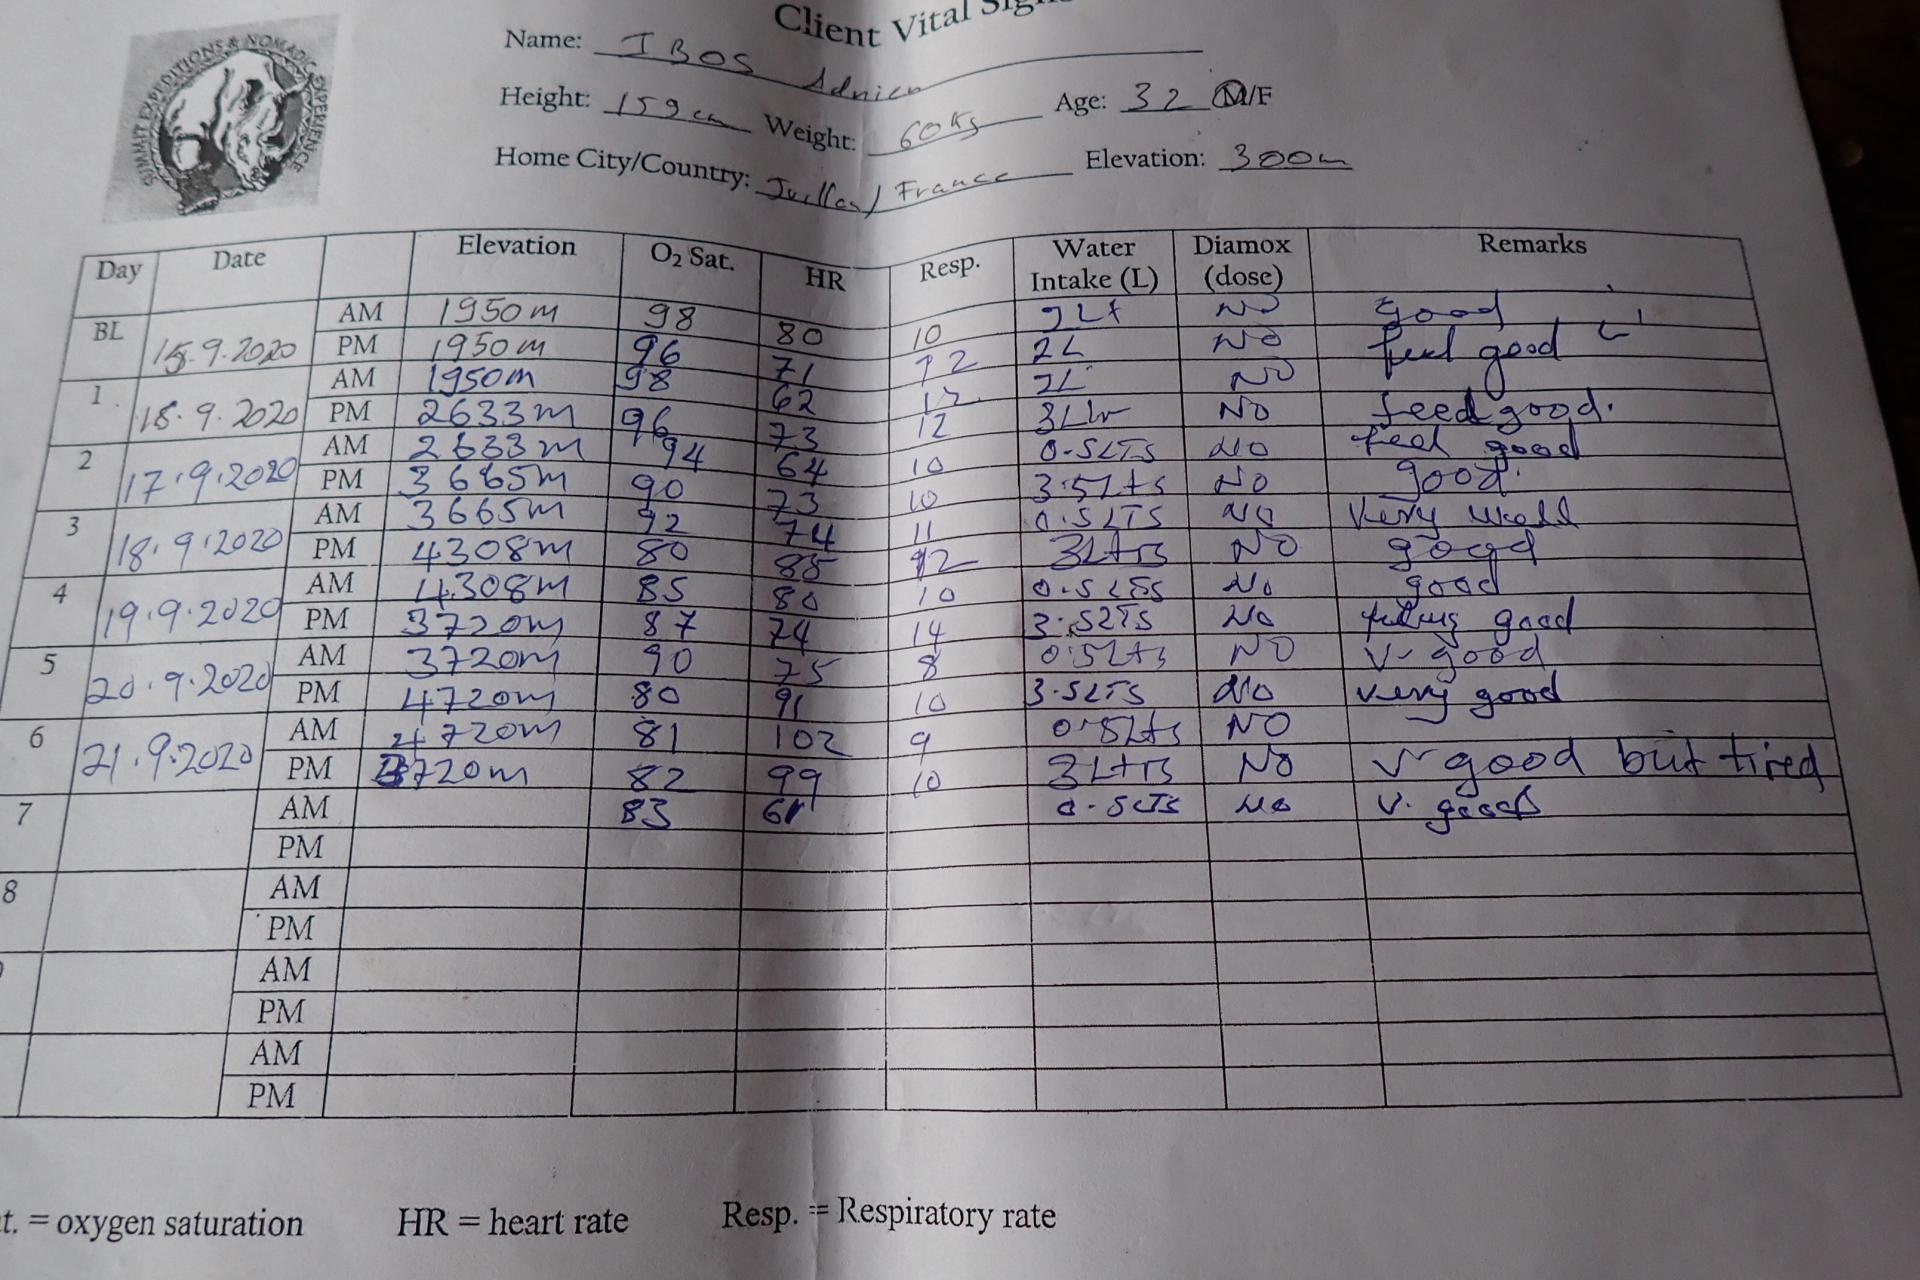 Client Vital
SUMMIT EXPEDITIONS & NOMADIC EXPERIENCE
Name: IBOS Adrien
Height: 159cm Weight: 60Kg Age: 32 M/F
Home City/Country: Juillan/France Elevation: 300m
Day Date Elevation O2 Sat. HR Resp. Water Intake (L) Diamox (dose) Remarks
BL 15.9.2020 AM 1950m 98 80 10 NO good
PM 1950m 96 71 12 2L NO feel good
1 AM 1950m 98 62 12 NO
18.9.2020 PM 2633m 96 73 12 NO feed good.
2 17.9.2020 AM 2633m 94 64 10 0.5LTS NO feel good
PM 3665m 90 73 10 3.5Lts NO good.
3 18.9.2020 AM 3665m 92 74 11 0.5LTS NO very well
PM 4308m 80 88 12 3Ltrs NO good
4 19.9.2020 AM 4308m 85 80 10 0.5LTS No good
PM 3720m 87 74 14 3.5LTS No feeling good
5 20.9.2020 AM 3720m 90 75 8 0.5Lts NO V. good
PM 4720m 80 91 10 3.5LTS NO very good
6 21.9.2020 AM 4720m 81 102 9 0.5Lts NO
PM 3720m 82 99 10 3Ltrs NO V good but tired
7 AM 83 61 0.5LTS NO V. good
PM
8 AM
PM
AM
PM
AM
PM
t. = oxygen saturation HR = heart rate Resp. = Respiratory rate